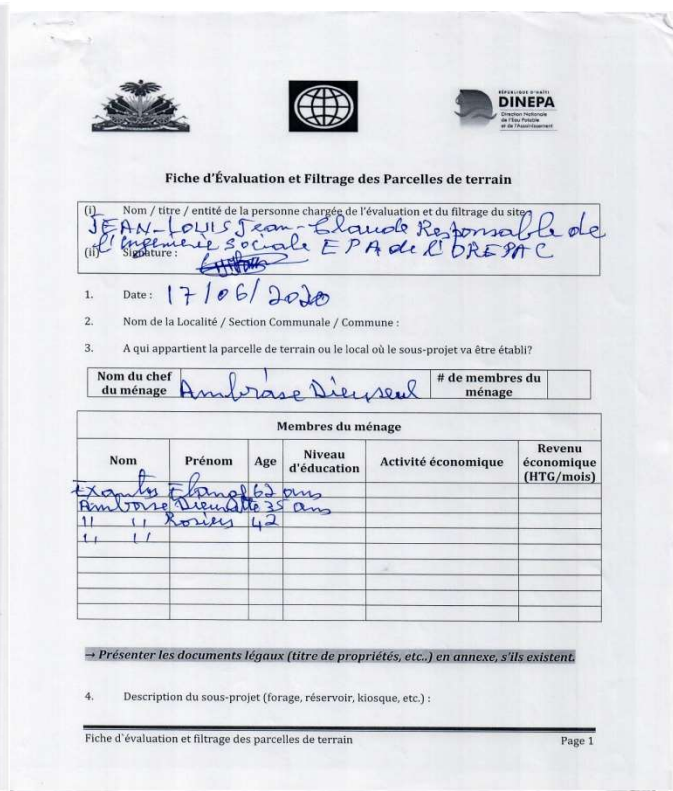 RÉPUBLIQUE D'HAÏTI
DINEPA
Direction Nationale
de l'Eau Potable
et de l'Assainissement
Fiche d'Évaluation et Filtrage des Parcelles de terrain
(i) Nom / titre / entité de la personne chargée de l'évaluation et du filtrage du site
JEAN-LOUIS Jean-Claude Responsable de
l'Ingenierie Sociale EPA de l'OREPAC
(ii) Signature :
1. Date : 17/06/2020
2. Nom de la Localité / Section Communale / Commune :
3. A qui appartient la parcelle de terrain ou le local où le sous-projet va être établi?
Nom du chef du ménage Ambroise Dieuseul # de membres du ménage
Membres du ménage
Nom Prénom Age Niveau d'éducation Activité économique Revenu économique (HTG/mois)
Exantus 62 ans
Amboise 35 ans
" " Rosiers 42
" "
→ Présenter les documents légaux (titre de propriétés, etc..) en annexe, s'ils existent.
4. Description du sous-projet (forage, réservoir, kiosque, etc.) :
Fiche d`évaluation et filtrage des parcelles de terrain Page 1